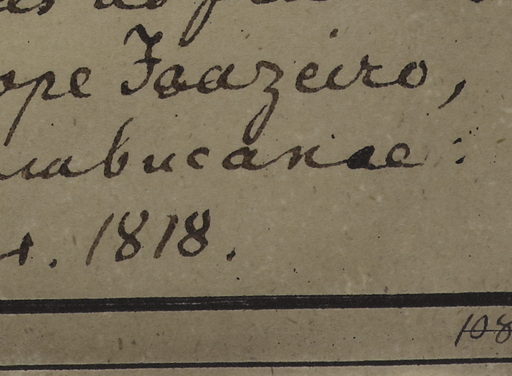 ope Joazeiro,
nabucanae:
1818.
108